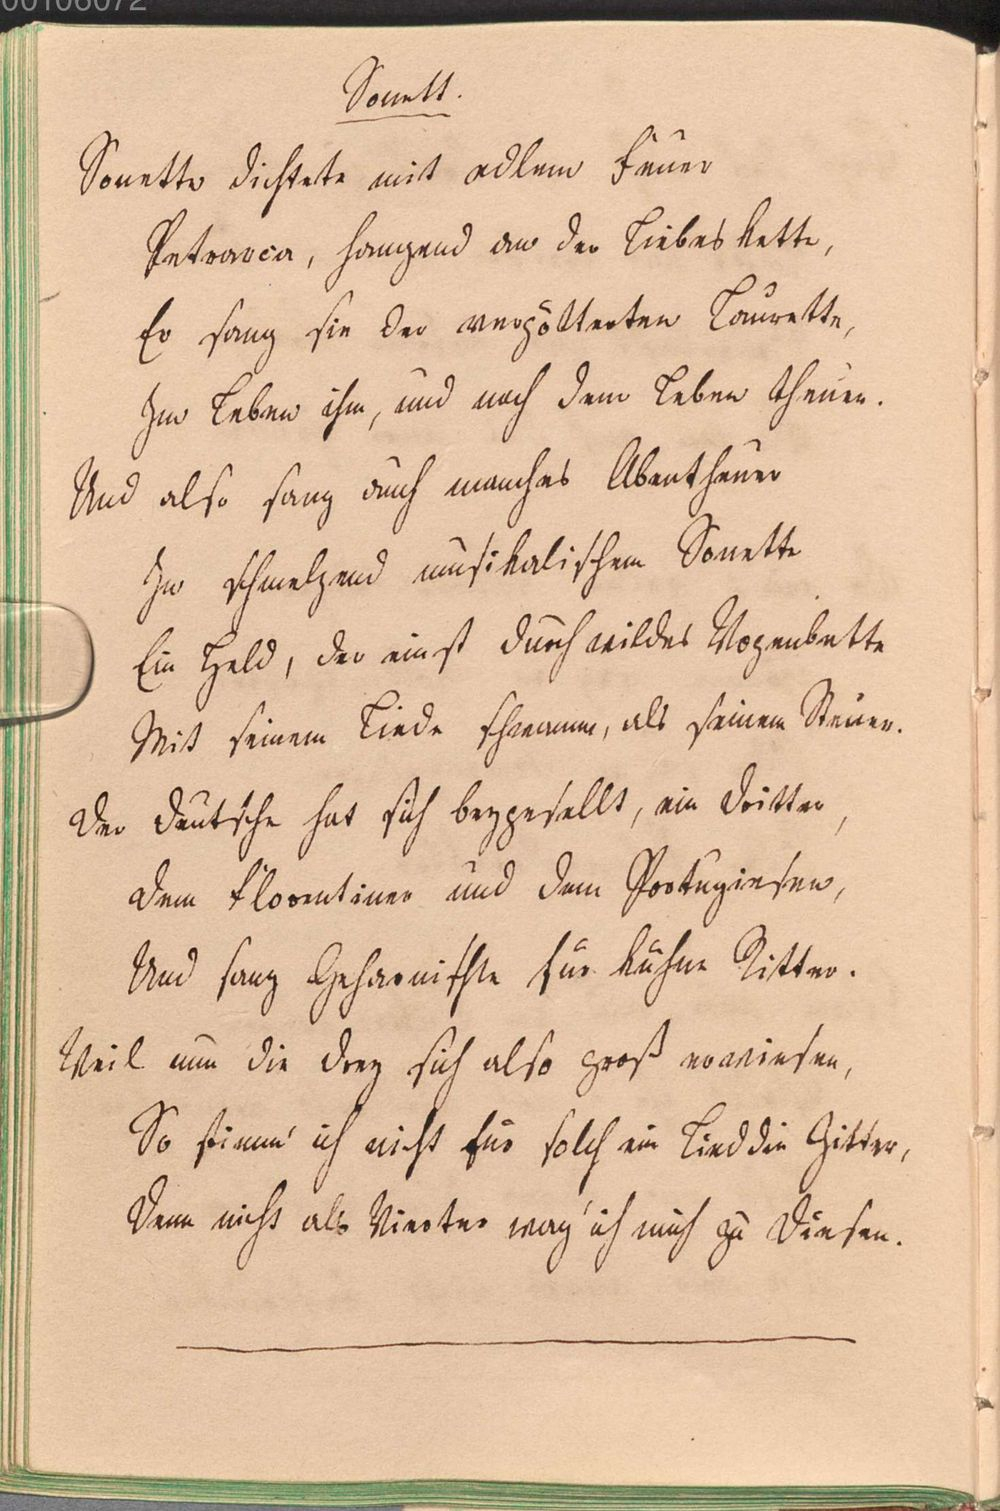 00106072
Sonett.
Sonette dichtete mit edlem Feuer
Petrarca, hangend an der Liebeskette,
Er sang sie der vergötterten Laurette,
Im Leben ihm, und nach dem Leben theuer.
Und also sang auch manches Abentheuer
In schmelzend musikalischem Sonette
Ein Held, der einst durch wildes Wogenbette
Mit seinem Liede schwamm, als seinem Steuer.
Der Deutsche hat sich beygesellt, ein Dritter,
Dem Florentiner und dem Portugiesen,
Und sang Geharnischte für kühne Ritter.
Weil nun die drey sich also groß erwiesen,
So stimm' ich nicht für solch ein Lied die Zitter,
Denn nicht als Vierter wag' ich mich zu Diesen.